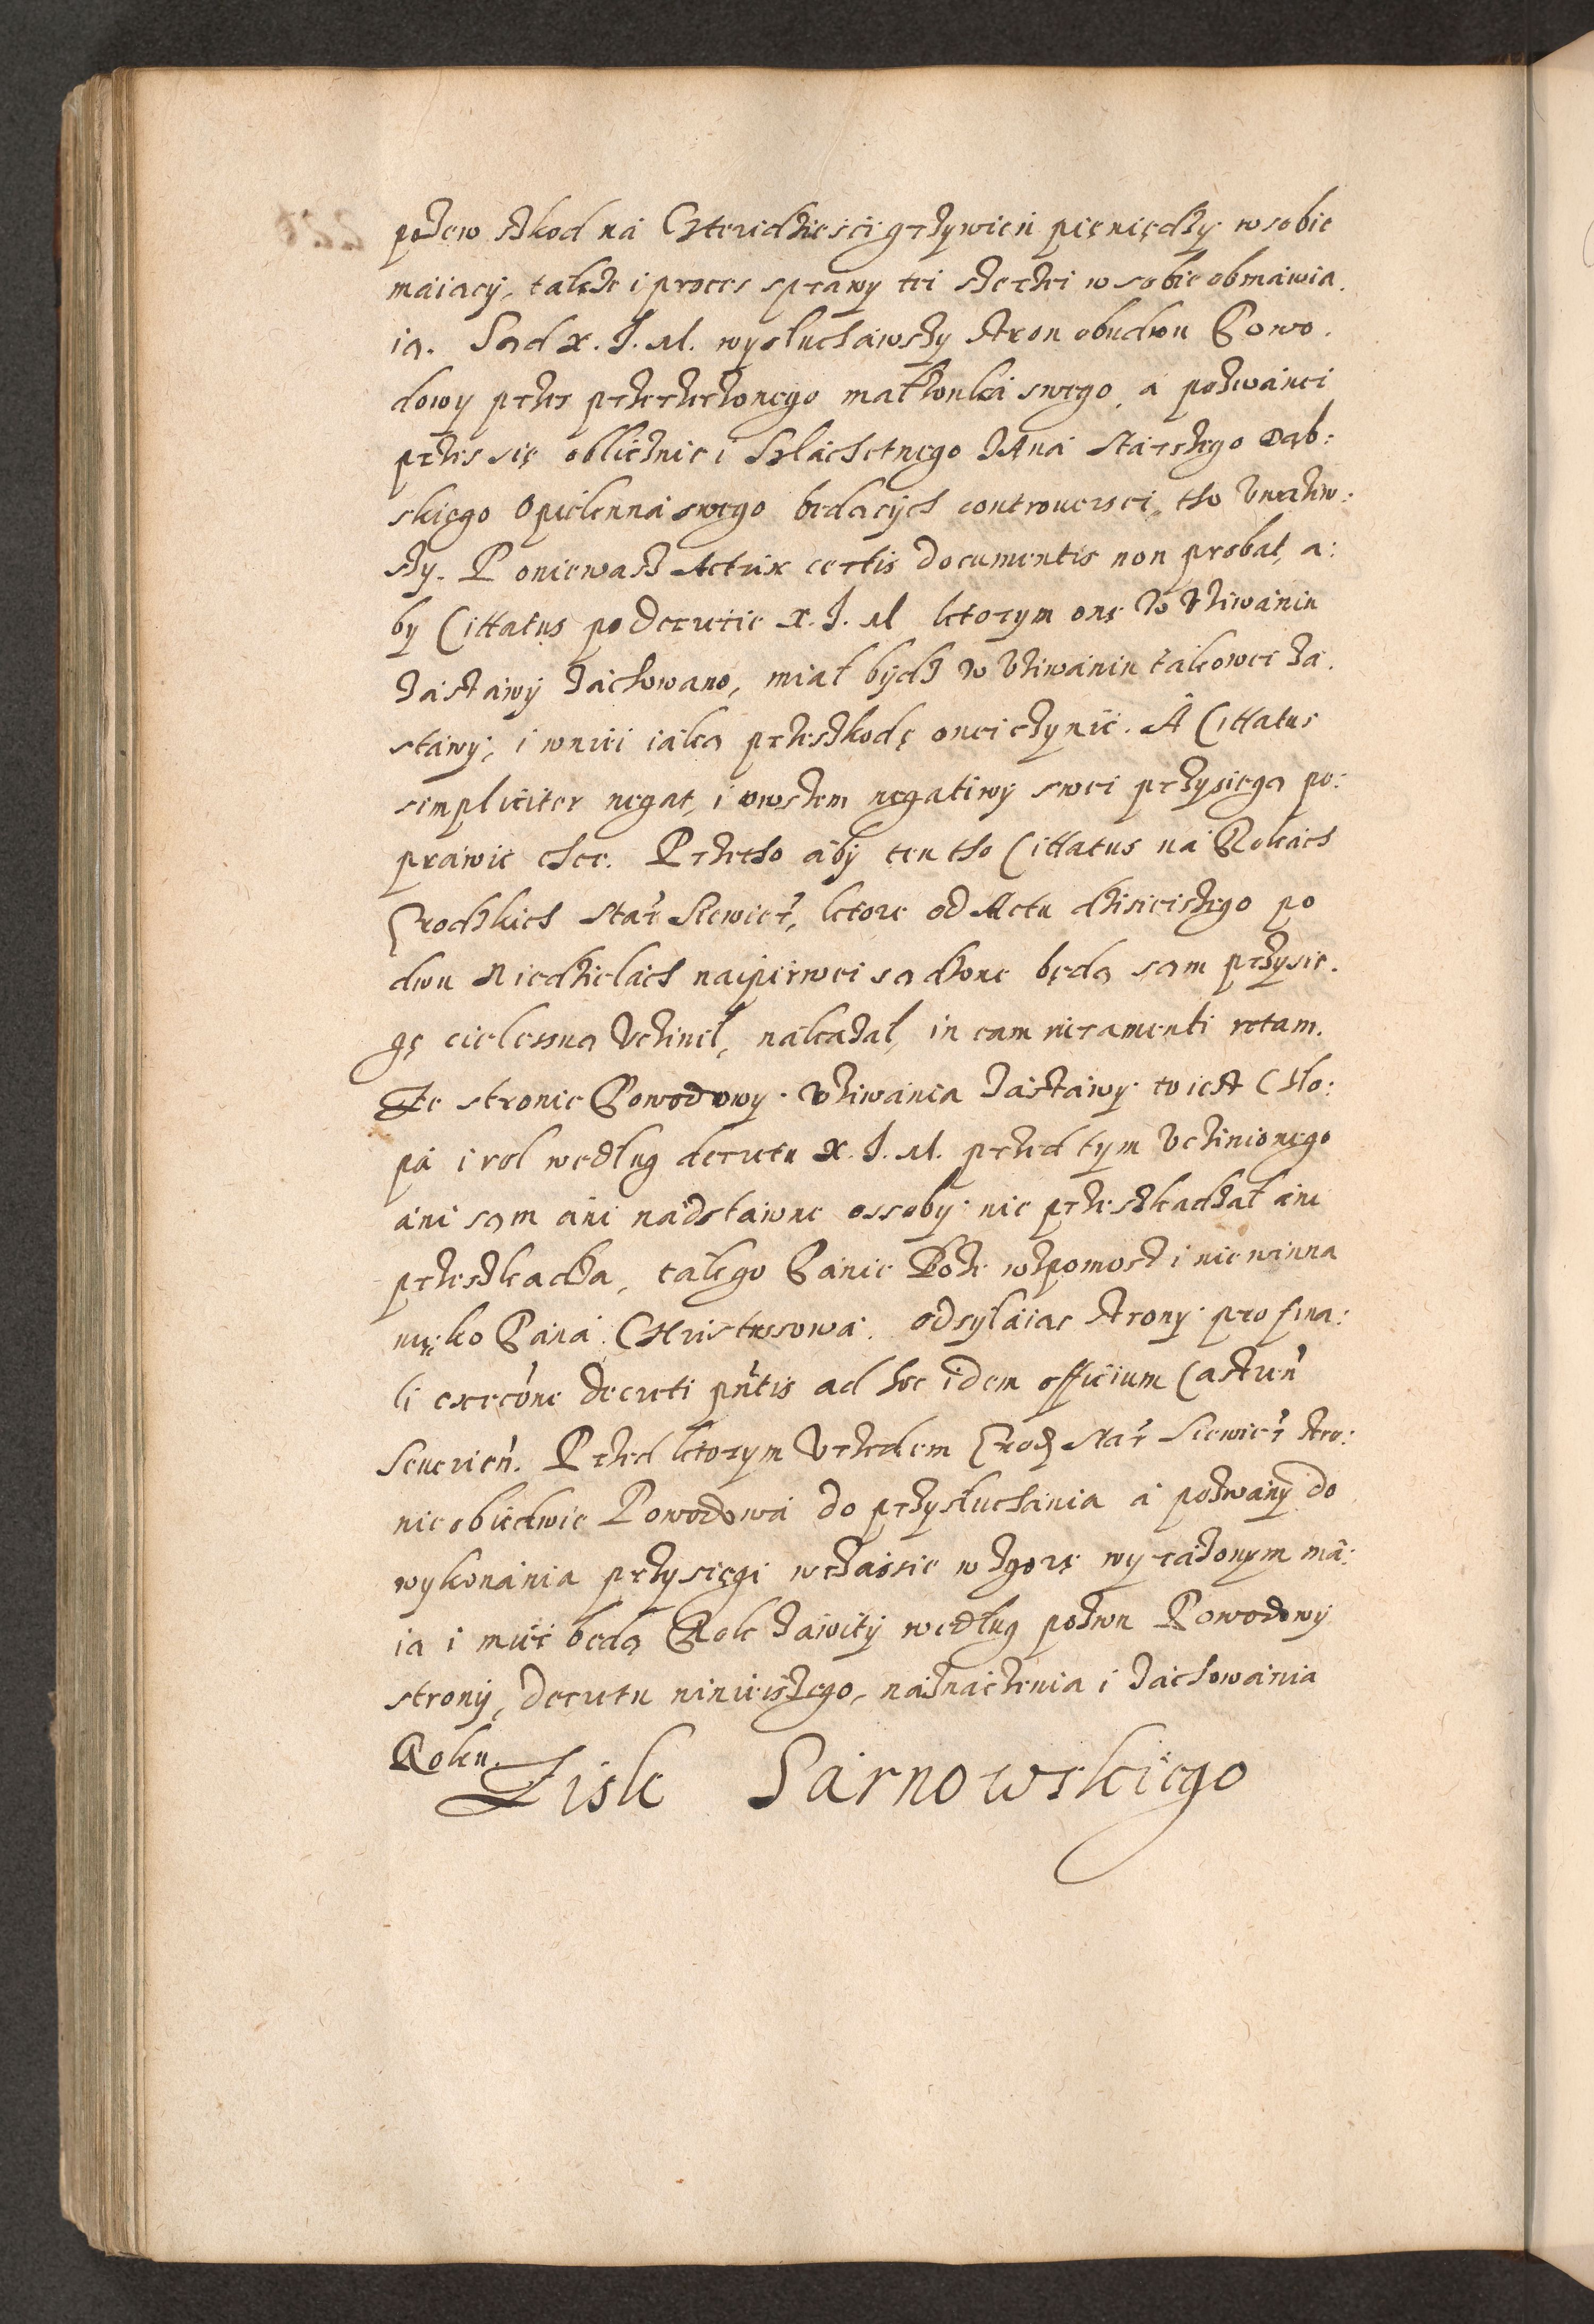 pozew szkod na Czteridziesci grzywien pięniędzy w sobie
maiący, takze i proces sprawy tei szerzei w sobie obmawia.
ią. Sąd X. J. M. wysłuchawszy stron obudwu Powo.
dowy przes przerzeczonego małzonka swego, a pozwanei
przes się oblicznie i Szlachetnego Jana Starszego Dąb:
skięgo Opiekunna swego bedących controuersei, tho Vwazyw:
szy. Poniewasz Actrix certis documentis non probat, a:
by Cittatus po Decretie X. J. M ktorym onę w Vziwaniu
Zastawy zachowano, miał bydz w Vziwaniu takowei Za.
stawy, i wniei iaką przeszkodę onei czynic. A Cittatus
simpliciter negat, i owszem negatiwy swei przysięgą po:
prawic chce. Przetho aby ten tho Cittatus na Rokach
Grodzkich Star Siewier, ktore od Actu dzisieiszego po
dwu Niedzielach naipierwei sądzone będą sam przysię.
gę cielessną Vczinił, nakazał, in eam iuramenti rotam.
Ze stronie Powodowy Vziwania Zastawy to iest Chło:
pa i rol według decretu X. J. M. przed tym Vczinionego
ani sam ani nadstawne ossoby nie przeszkadzał ani
przeszkadza, takgo Panie Boze wspomosz i niewinna
męko Pana Christusowa. Odsyłaiąc strony pro fina:
li exerone Decreti pntis ad hoc idem officium Castren
Seuerien. Przed ktorym Vrzedem Grodz Star Siewier stro:
nie obiedwie Powodowa do przysłuchania a pozwany do
wykonania przysięgi w czasie w zgorę wyrazonym ma:
ią i miec będą Rok Zawity według pozwu Powodowy
strony, decretu ninieiszego, naznaczenia i zachowania
Roku.
Zisk Sarnowskiego